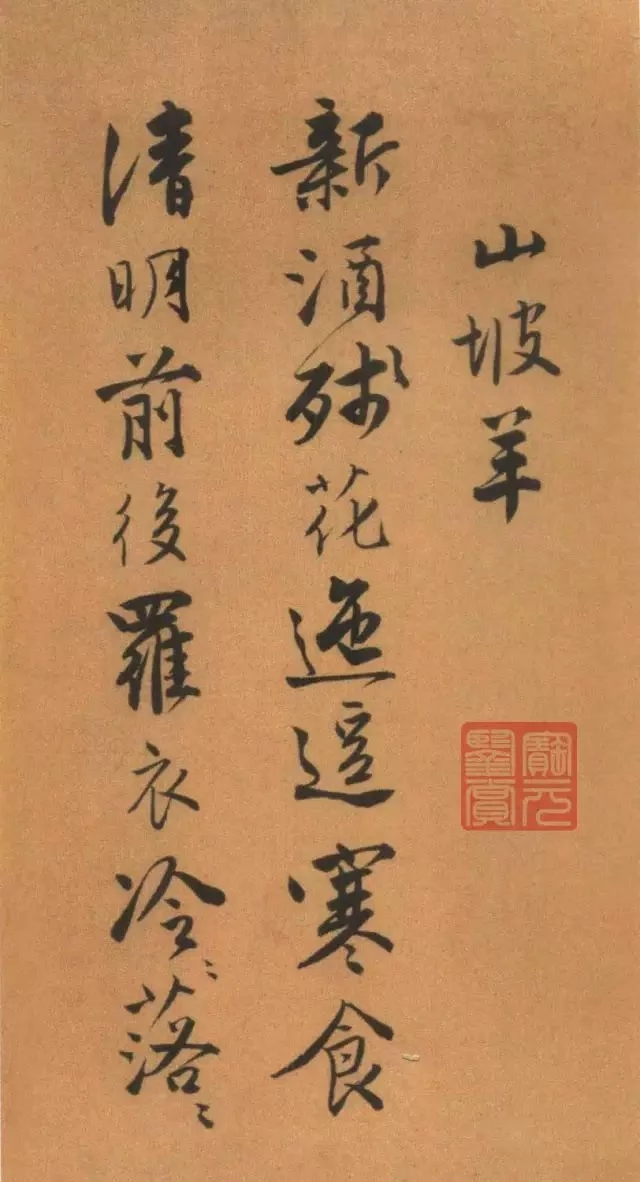 山坡羊
新酒殘花迤逗寒食
清明前後羅衣冷〻落〻
寶元
鑒賞